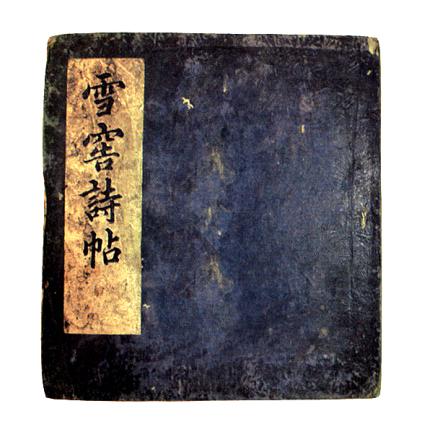 雪窖詩帖